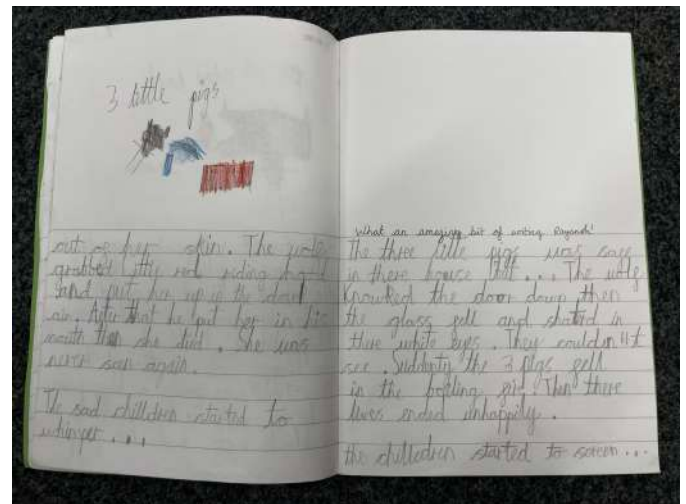 3 little pigs
out of her skin. The wolf
grabbed little red riding hood
and put her up in the dark
air. After that he put her in his
mouth then she died. She was
never seen again.
The sad chilldren started to
whimper...
What an amazing bit of writing
the three little pigs was safe
in there house till... The wolf
knowked the door down then
the glass fell and shated in
there white eyes. They couldn't
see. Suddenty the 3 pigs fell
in the boiling Then there
lives ended unhappily.
the chilledren started to scream...